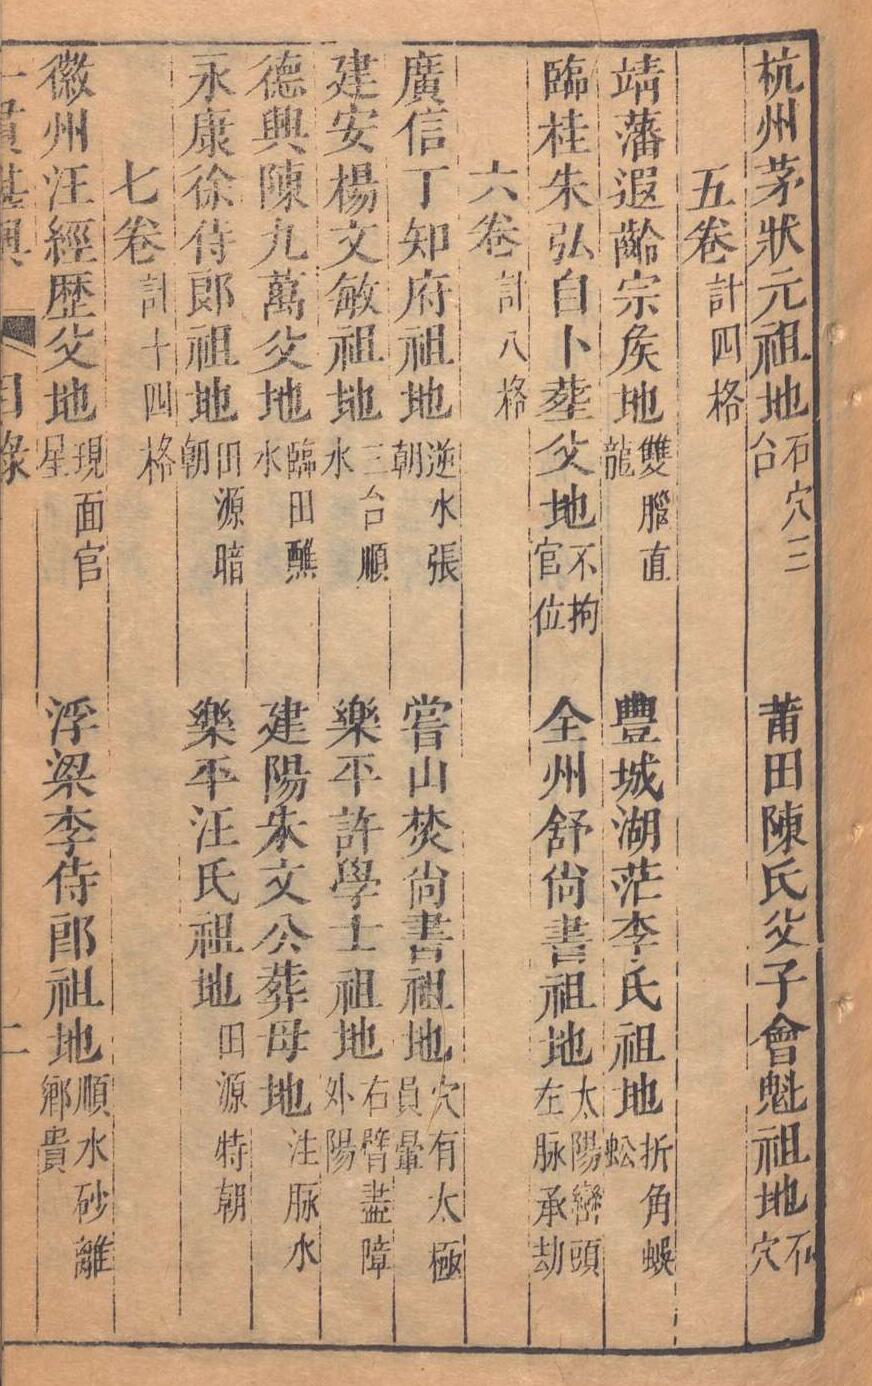 杭州茅狀元祖地石穴三台 莆田陳氏父子會魁祖地石穴
五卷計四格
靖藩遐齡宗矦地雙腦直龍 豐城湖茫李氏祖地折角蜈蚣
臨桂朱弘自卜塟父地不拘官位 全州舒尙書祖地太陽巒頭左脉承劫
六卷計八格
廣信丁知府祖地逆水張朝 嘗山樊尙書祖地穴有太極員暈
建安楊文敏祖地三台順水 樂平許學士祖地右臂盡障外陽
德興陳九萬父地臨田蘸水 建陽朱文公葬母地注脉水
永康徐侍郎祖地田源暗朝 樂平汪氏祖地田源特朝
七卷計十四格
徽州汪經歷父地現面官星 浮梁李侍郎祖地順水砂離鄉貴
一貫堪輿 目錄 二